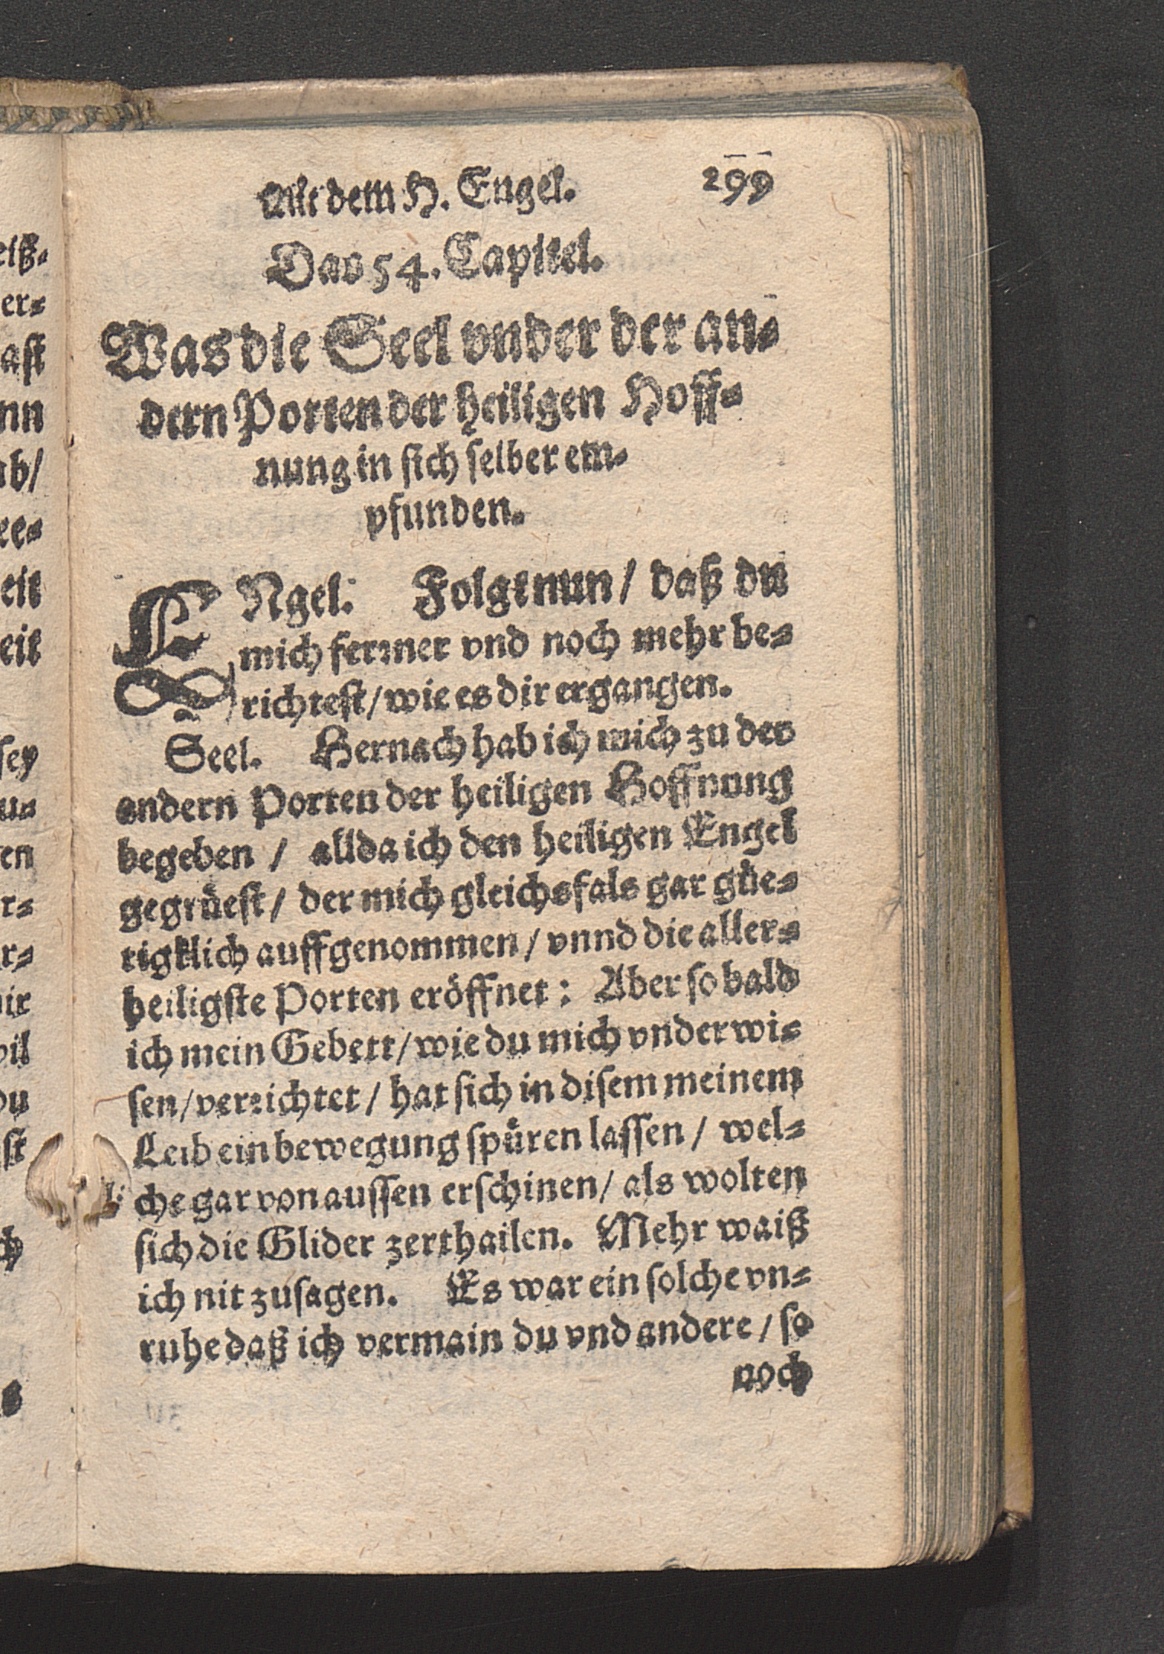 Mit dem H. Engel. 299
Das 54. Capitel.
Was die Seel vnder der an-
dern Porten der heiligen Hoff-
nung in sich selber em-
pfunden.
ENgel. Folgt nun / daß du
mich ferrner vnd noch mehr be-
richtest / wie es dir ergangen.
Seel. Hernach hab ich mich zu der
andern Porten der heiligen Hoffnung
begeben / allda ich den heiligen Engel
gegrüest / der mich gleichsfals gar güe-
tigklich auffgenommen / vnnd die aller-
heiligste Porten eröffnet: Aber so bald
ich mein Gebett / wie du mich vnderwi-
sen / verrichtet / hat sich in disem meinem
Leib ein bewegung spüren lassen / wel-
che gar von aussen erschinen / als wolten
sich die Glider zerthailen. Mehr waiß
ich nit zusagen. Es war ein solche vn-
ruhe daß ich vermain du vnd andere / so
noch